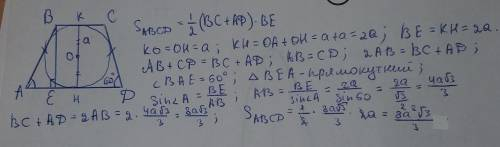 B K C
a
O
60°
A E H D
S_ABCD = 1/2 (BC + AD) · BE
KO = OH = a ; KH = OA + OH = a + a = 2a ; BE = KH = 2a.
AB + CD = BC + AD ; AB = CD ; 2AB = BC + AD ;
∠BAE = 60° ; △BEA - прямокутний ;
sin∠A = BE/AB ; AB = BE/sin∠A = 2a/sin60 = 2a/(√3/2) = 4a√3/3 ;
BC + AD = 2AB = 2 · 4a√3/3 = 8a√3/3 ; S_ABCD = 1/2 · 8a√3/3 · 2a = 8a²√3/3